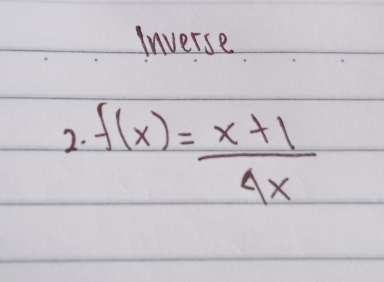 Inverse
2. f(x) = x + 1
4x